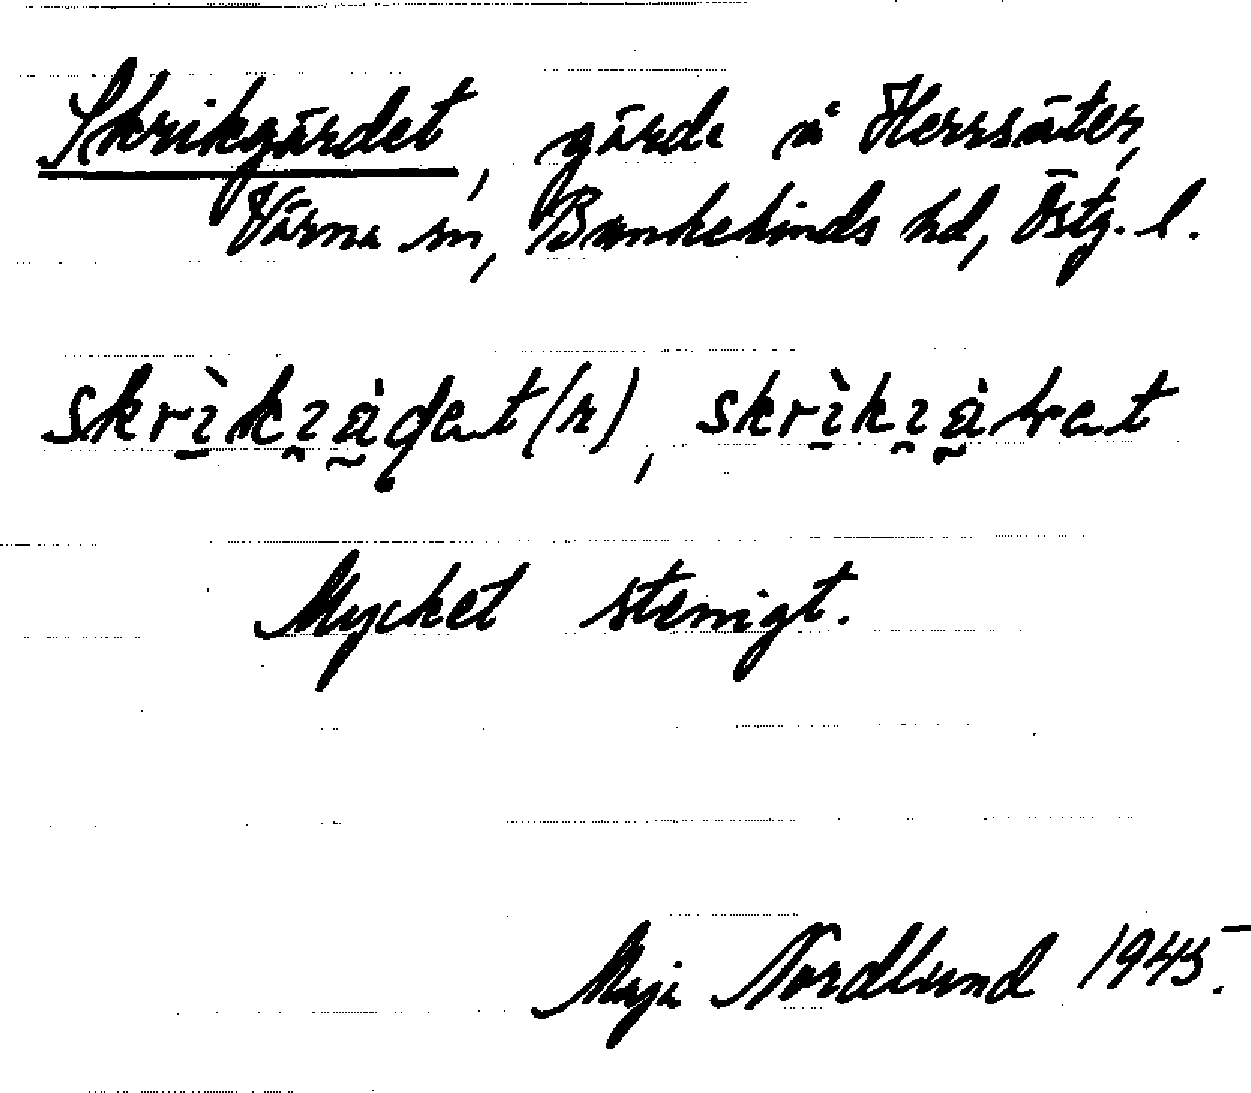 Skrikgärdet, gärde å Herrsäter,
Värna sn, Bankekinds hd, Östg. l.
Mycket stenigt.
Maja Nordlund 1945.